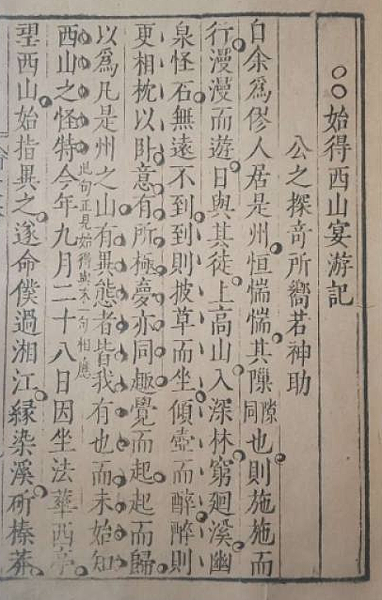 ○○始得西山宴游記
公之探奇所嚮若神助
自余爲僇人居是州恒惴惴其隟隙同也則施施而
行漫漫而遊日與其徒上高山入深林窮廻溪幽
泉怪石無遠不到到則披草而坐傾壺而醉醉則
更相枕以卧意有所極夢亦同趣覺而起起而歸
以爲凡是州之山有異態者皆我有也而未始知
此句正見始得與末一句相應
西山之怪特今年九月二十八日因坐法華西亭
望西山始指異之遂命僕過湘江緣染溪斫榛莽